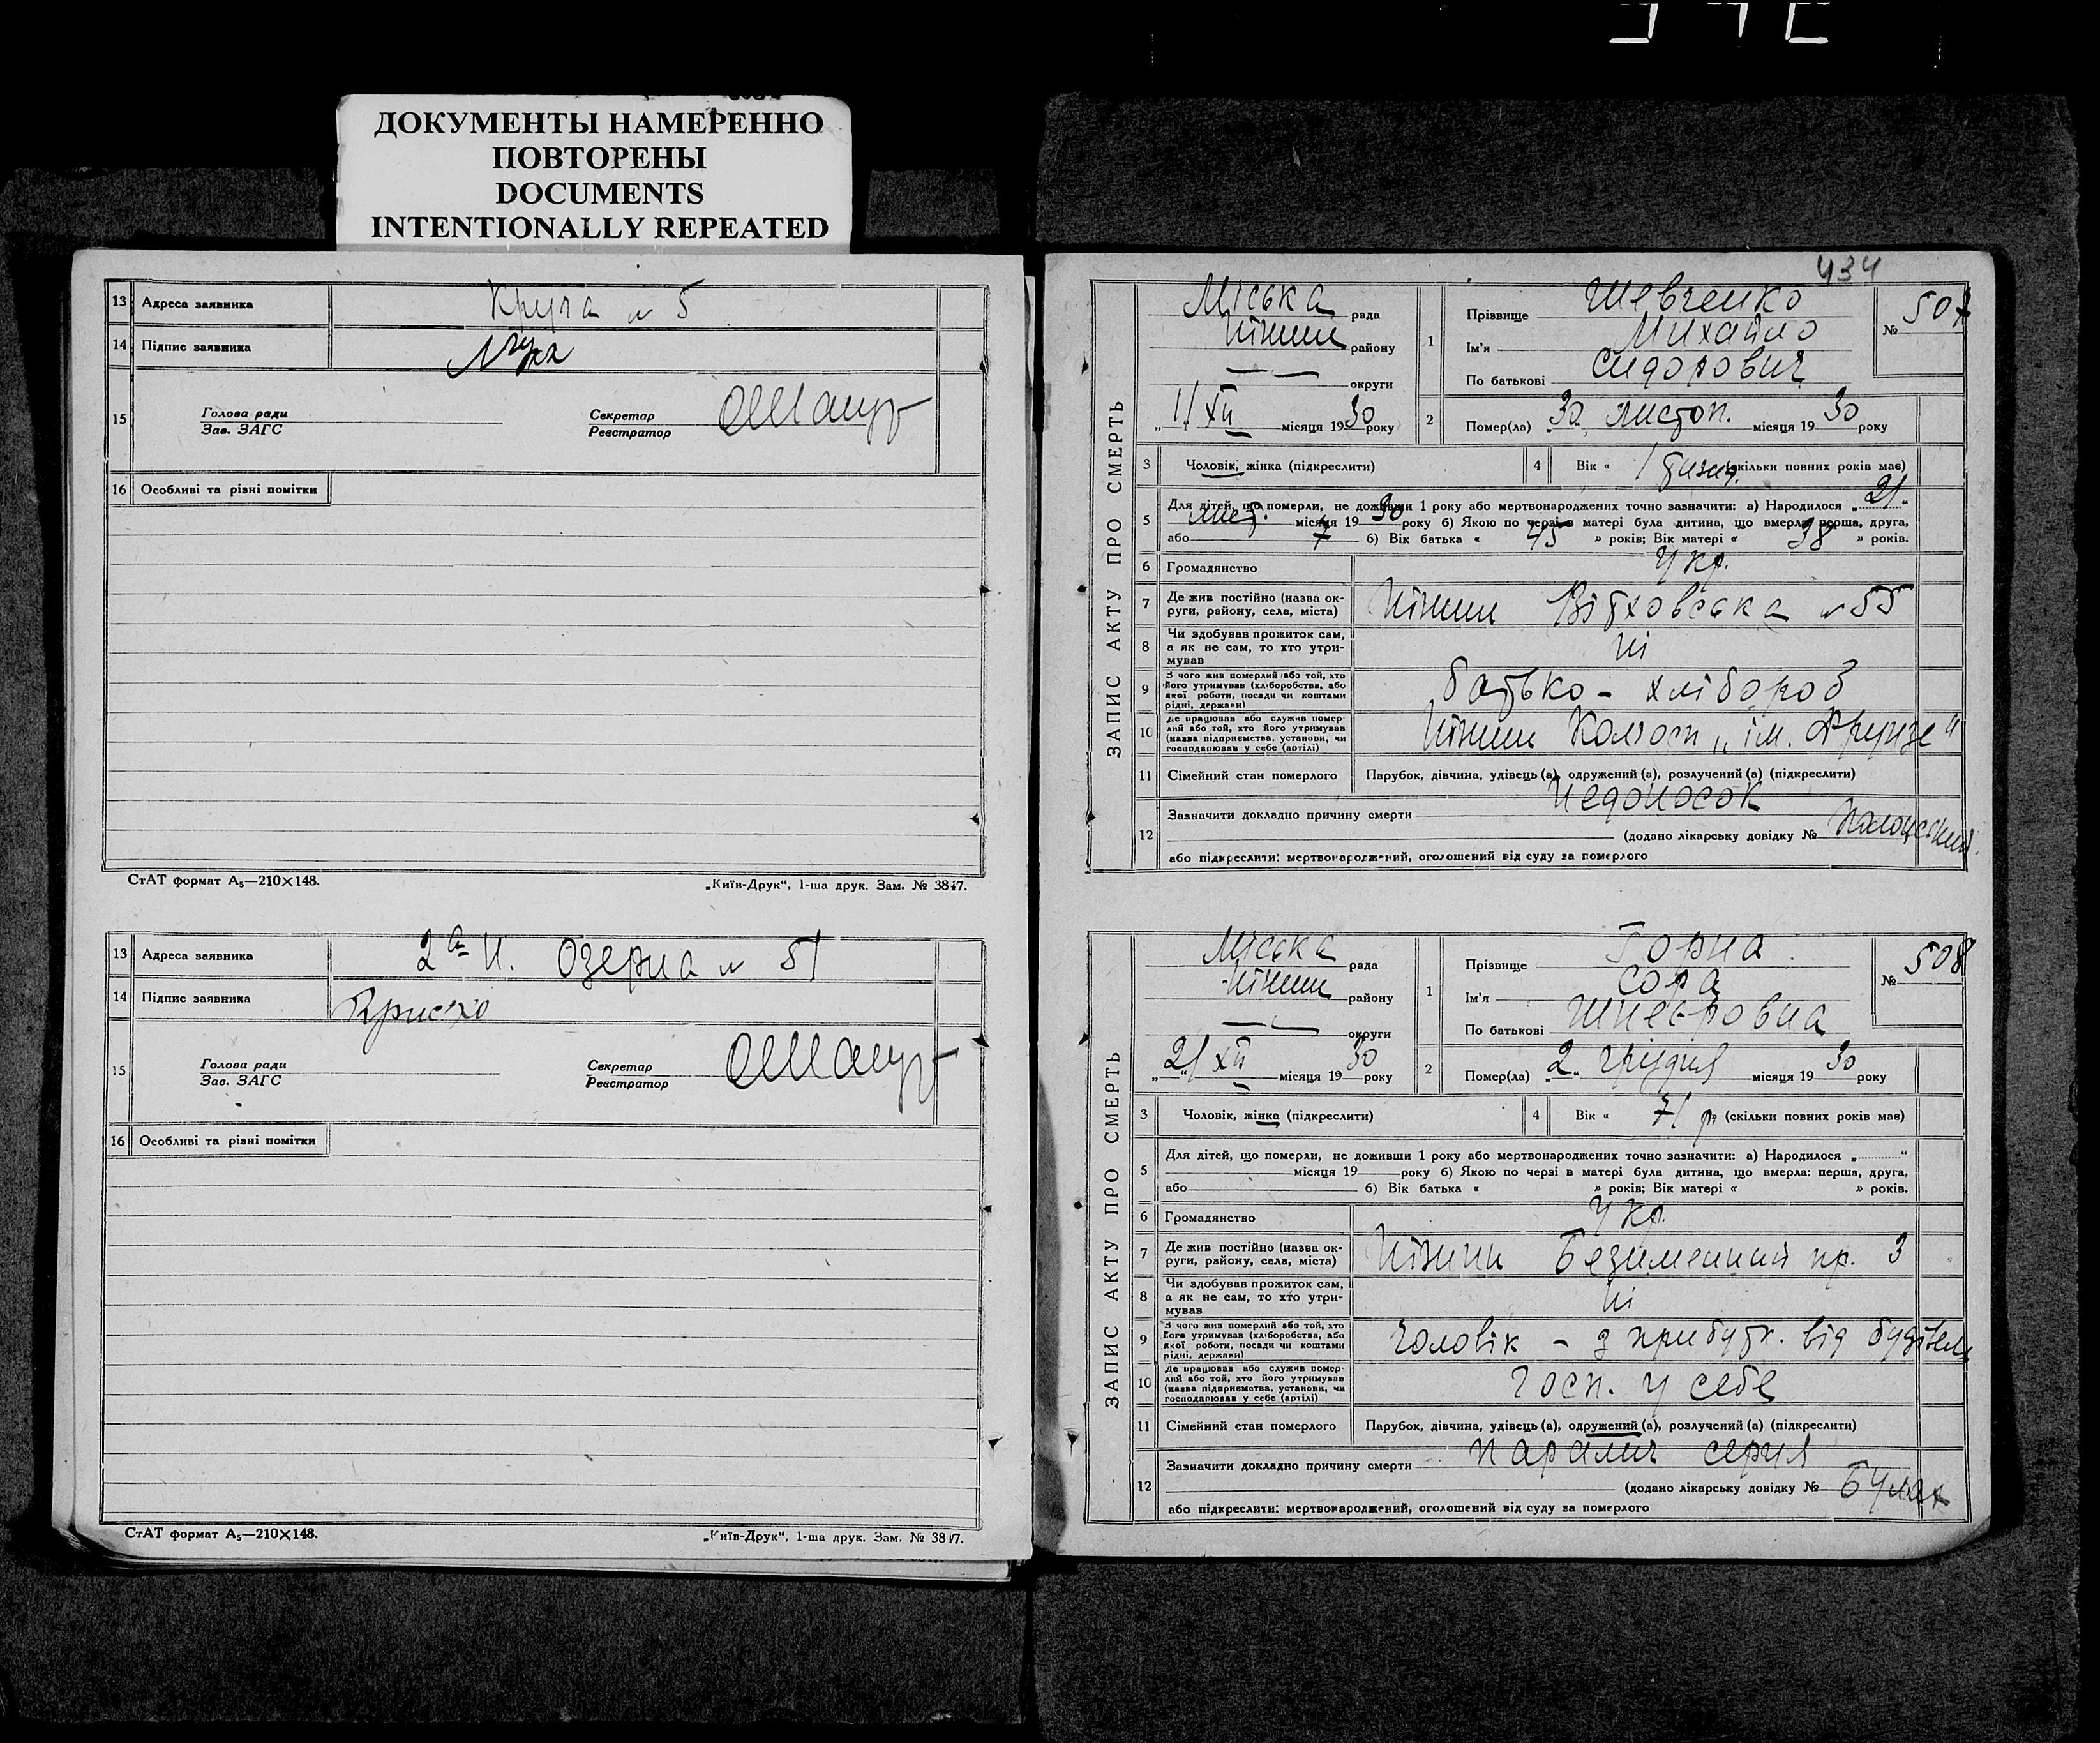 ДОКУМЕНТЫ НАМЕРЕННО
ПОВТОРЕНЫ
DOCUMENTS
INTENTIONALLY REPEATED
13 Адреса заявника Круга № 5
14 Підпис заявника
15 Голова ради
Зав. ЗАГС
Секретар
Реєстратор
16 Особливі та різні помітки
СтАТ формат А₅—210×148. „Київ-Друк“, 1-ша друк. Зам. № 3847.
13 Адреса заявника 2а Н. Озерна № 51
14 Підпис заявника
15 Голова ради
Зав. ЗАГС
Секретар
Реєстратор
16 Особливі та різні помітки
СтАТ формат А₅—210×148. „Київ-Друк“, 1-ша друк. Зам. № 3847.
434
ЗАПИС АКТУ ПРО СМЕРТЬ
Міська рада
Ніжин району
— — округи
„1/XII місяця 1930 року
1 Прізвище Шевченко
Ім'я Михайло
По батькові Сидорович
№ 507
2 Помер(ла) „30„ листоп. місяця 1930 року
3 Чоловік, жінка (підкреслити)
4 Вік « 1 тижд. (скільки повних років має)
5 Для дітей, що померли, не доживши 1 року або мертвонароджених точно зазначити: а) Народилося „21“
лист. місяця 1930 року б) Якою по черзі в матері була дитина, що вмерла: перша, друга,
або 7 б) Вік батька « 45 » років; Вік матері « 38 » років.
6 Громадянство Укр.
7 Де жив постійно (назва ок-
руги, району, села, міста) Ніжин Вітховська № 55
8 Чи здобував прожиток сам,
а як не сам, то хто утри-
мував ні
9 З чого жив померлий або той, хто
його утримував (хліборобства, або
якої роботи, посади чи коштами
рідні, держави) батько - хлібороб
10 Де працював або служив помер-
лий або той, хто його утримував
(назва підприємства, установи, чи
господарював у себе (артілі) Ніжин Колгосп „ім. Фрунзе“
11 Сімейний стан померлого Парубок, дівчина, удівець (а), одружений (а), розлучений (а) (підкреслити)
12 Зазначити докладно причину смерти недоносок
(додано лікарську довідку №
або підкреслити: мертвонароджений, оголошений від суду за померлого
ЗАПИС АКТУ ПРО СМЕРТЬ
Міська рада
Ніжин району
— — округи
„2/XII місяця 1930 року
1 Прізвище Горна
Ім'я Сора
По батькові
№ 508
2 Помер(ла) „2„ грудня місяця 1930 року
3 Чоловік, жінка (підкреслити)
4 Вік « 71 р. (скільки повних років має)
5 Для дітей, що померли, не доживши 1 року або мертвонароджених точно зазначити: а) Народилося „ “
місяця 19 року б) Якою по черзі в матері була дитина, що вмерла: перша, друга,
або б) Вік батька « » років; Вік матері « » років.
6 Громадянство Укр.
7 Де жив постійно (назва ок-
руги, району, села, міста) Ніжин Безименний пр. 3
8 Чи здобував прожиток сам,
а як не сам, то хто утри-
мував ні
9 З чого жив померлий або той, хто
його утримував (хліборобства, або
якої роботи, посади чи коштами
рідні, держави) Чоловік - з прибутк. від будівель
10 Де працював або служив помер-
лий або той, хто його утримував
(назва підприємства, установи, чи
господарював у себе (артілі) Госп. у себе
11 Сімейний стан померлого Парубок, дівчина, удівець (а), одружений (а), розлучений (а) (підкреслити)
12 Зазначити докладно причину смерти параліч серця
(додано лікарську довідку № Булах
або підкреслити: мертвонароджений, оголошений від суду за померлого